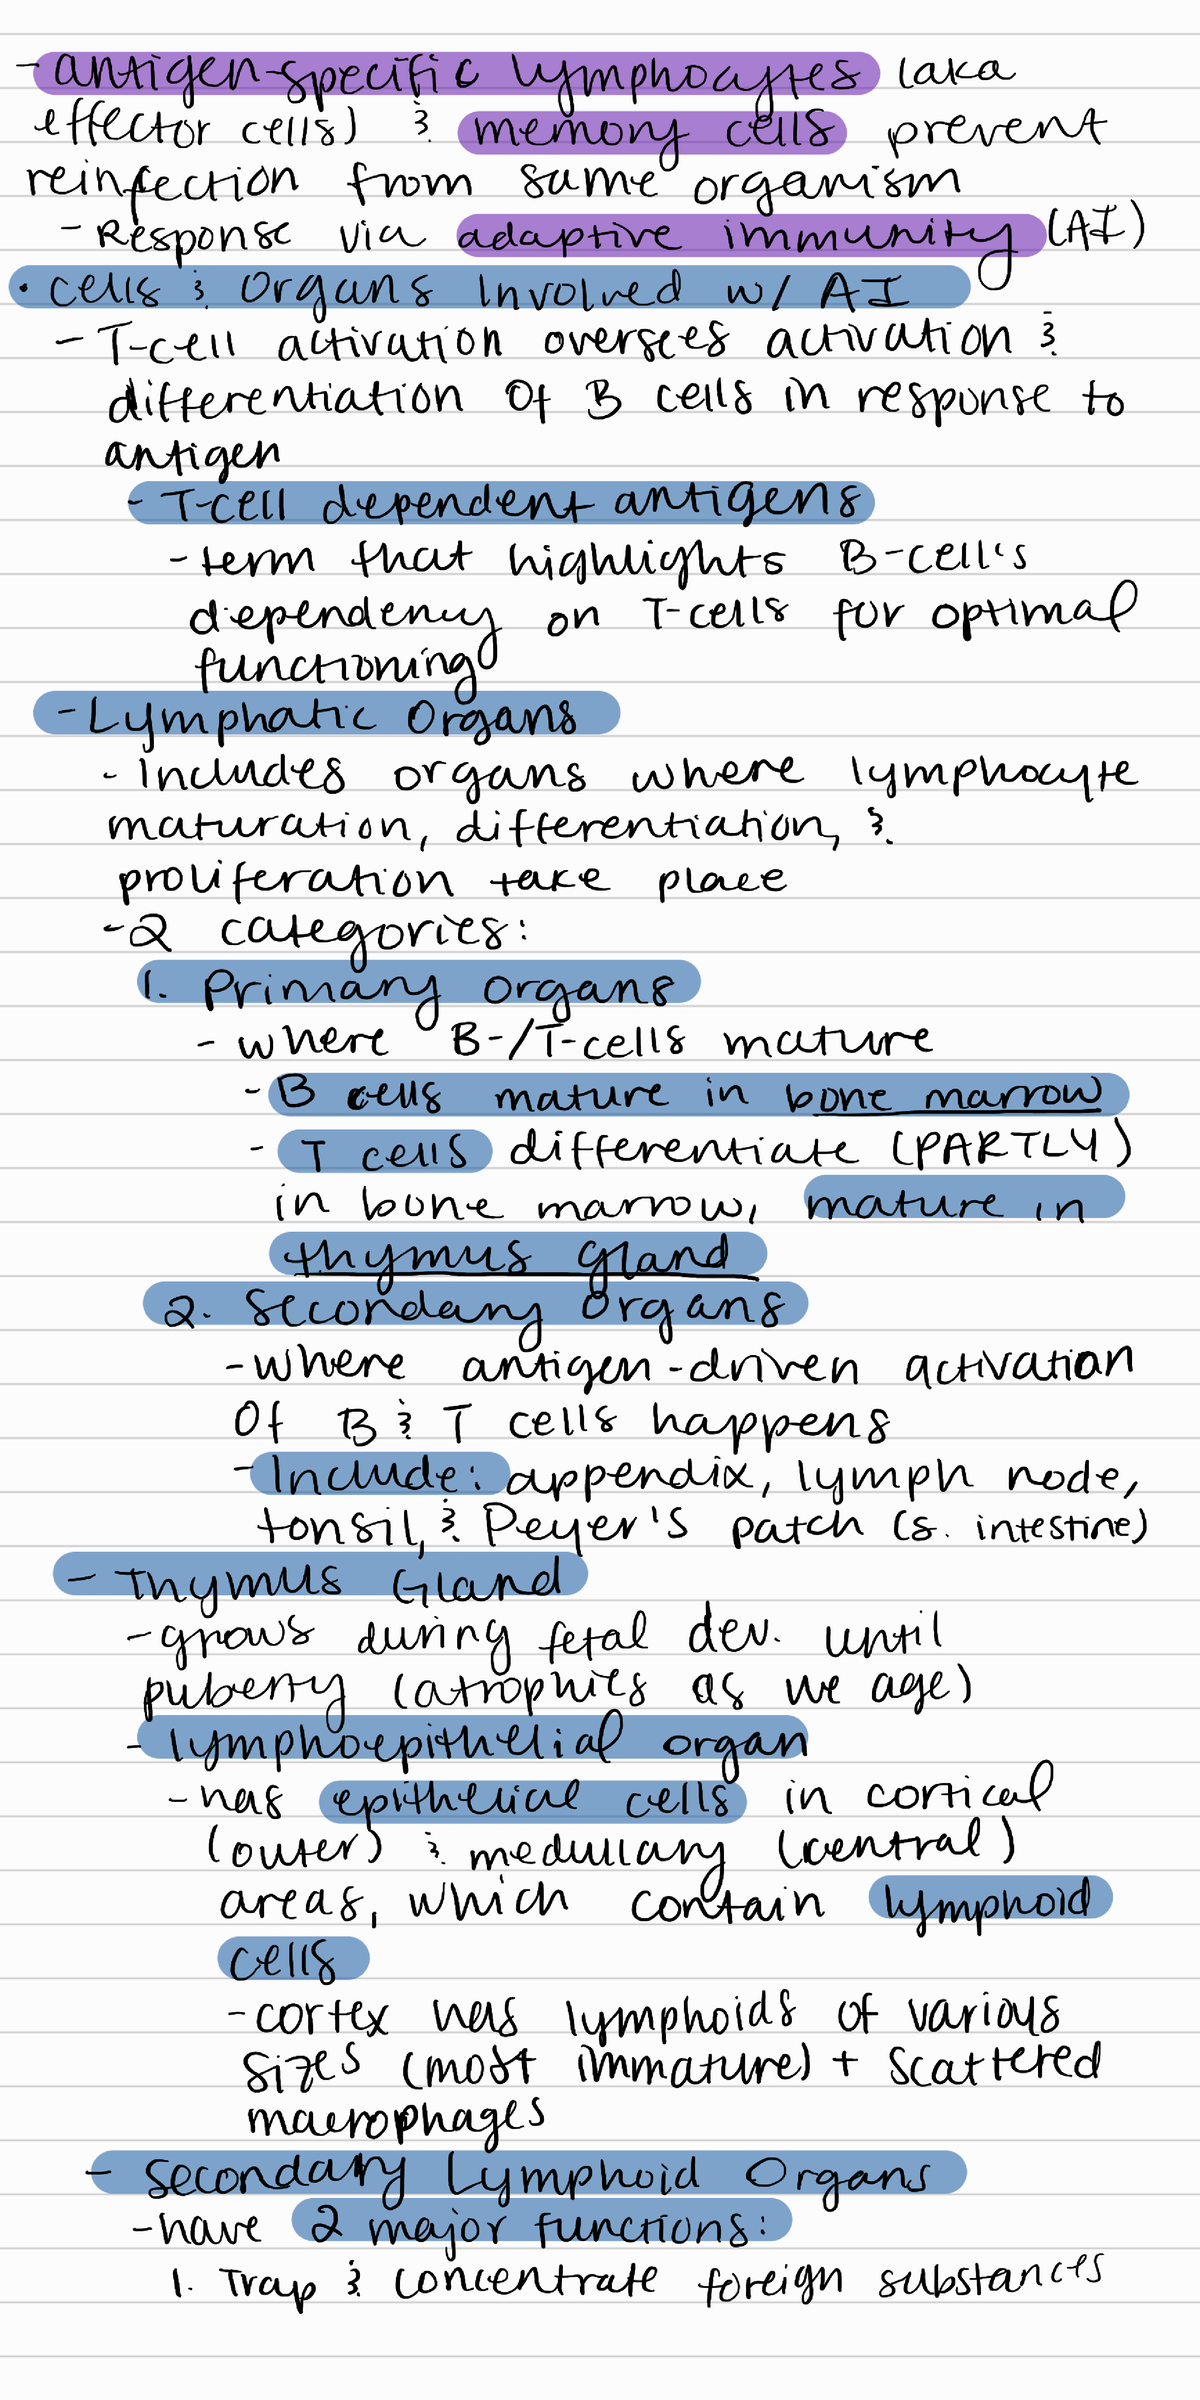 - antigen-specific lymphocytes (aka
effector cells) & memory cells prevent
reinfection from same organism
- Response via adaptive immunity (AI)
• cells & Organs Involved w/ AI
- T-cell activation oversees activation &
differentiation of B cells in response to
antigen
- T-cell dependent antigens
- term that highlights B-cell's
dependency on T-cells for optimal
functioning
- Lymphatic Organs
- Includes organs where lymphocyte
maturation, differentiation, &
proliferation take place
- 2 categories:
1. Primary Organs
- where B-/T-cells mature
- B cells mature in bone marrow
- T cells differentiate (PARTLY)
in bone marrow, mature in
thymus gland
2. Secondary Organs
- where antigen-driven activation
Of B & T cells happens
- Include: appendix, lymph node,
tonsil, & Peyer's patch (s. intestine)
- Thymus Gland
- grows during fetal dev. until
puberty (atrophies as we age)
- lymphoepithelial organ
- has epithelial cells in cortical
(outer) & medullary (central)
areas, which contain lymphoid
cells
- cortex has lymphoids of various
sizes (most immature) + scattered
macrophages
- Secondary Lymphoid Organs
- have 2 major functions:
1. Trap & concentrate foreign substances